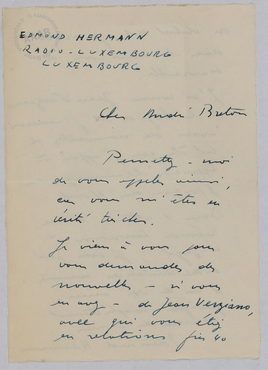 EDMOND HERMANN
RADIO-LUXEMBOURG
LUXEMBOURG
Cher André Breton
Permettez-moi
de vous appeler ainsi,
car vous m'êtes en
vérité très cher.
Je viens à vous pour
vous demander des
nouvelles - si vous
en avez - de Jean
avec qui vous étiez
en relations
40